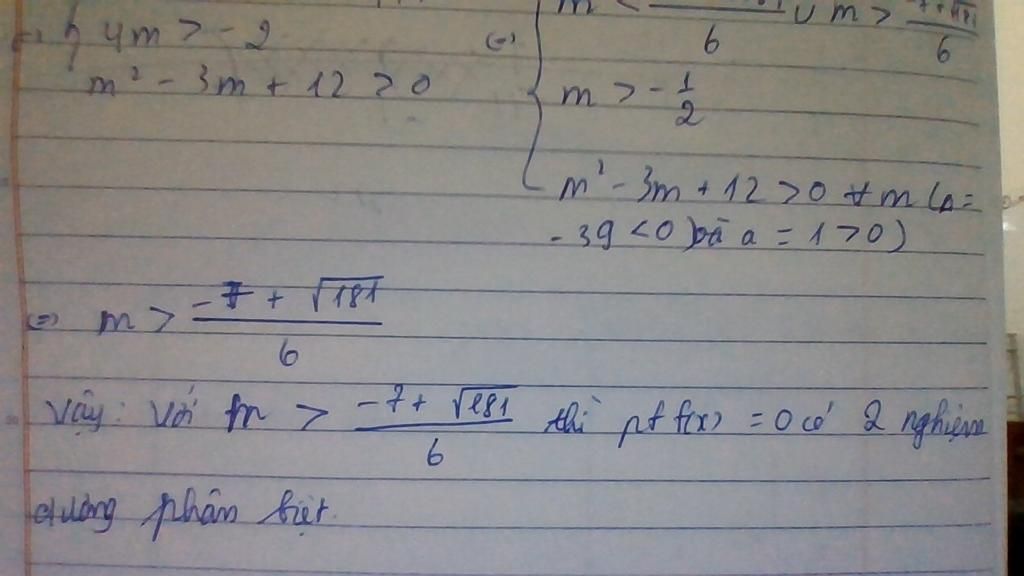 m < ∪ m > \frac{-7+\sqrt{181}}{6}
4m > -2 (=)
m² - 3m + 12 > 0
m > -\frac{1}{2}
m² - 3m + 12 > 0 ∀m (Δ =
-39 < 0 và a = 1 > 0)
(=) m > \frac{-7 + \sqrt{181}}{6}
Vậy: Với m > \frac{-7 + \sqrt{181}}{6} thì pt f(x) = 0 có 2 nghiệm
dương phân biệt.